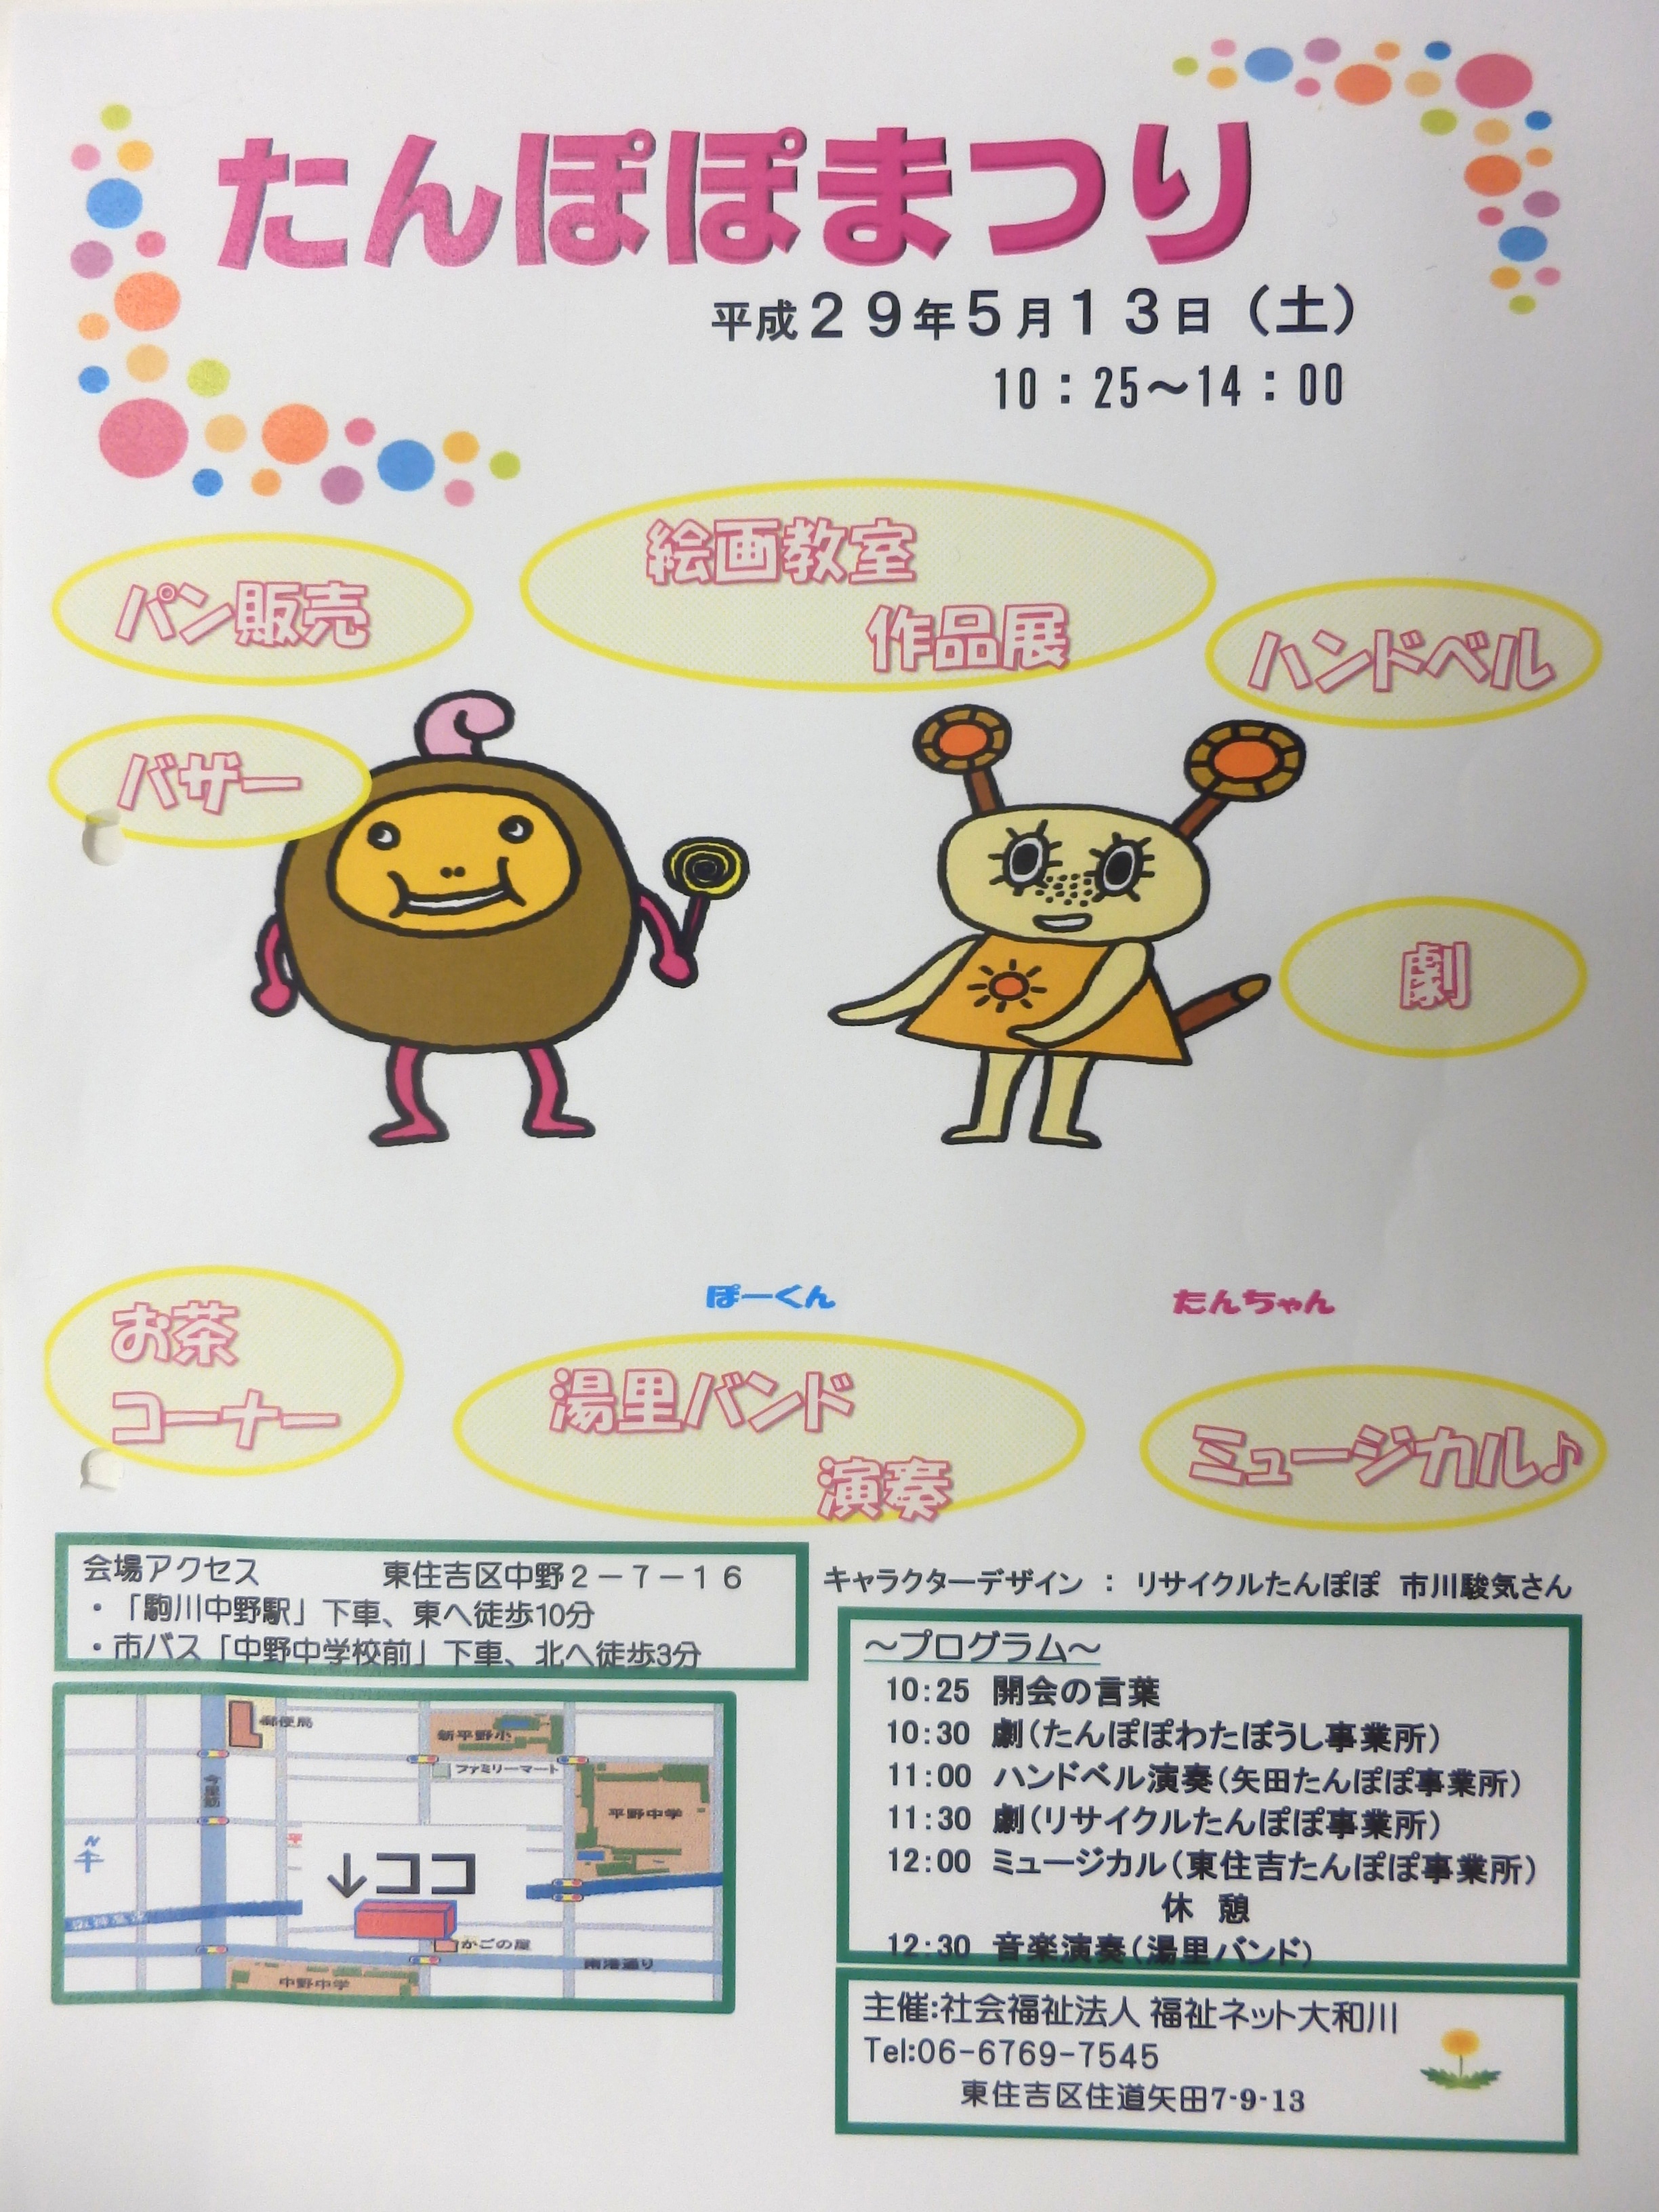 たんぽぽまつり
平成２９年５月１３日（土）
10：25～14：00
絵画教室
作品展
パン販売
ハンドベル
バザー
劇
ぽーくん
たんちゃん
お茶
コーナー
湯里バンド
演奏
ミュージカル♪
会場アクセス　東住吉区中野２－７－１６
・「駒川中野駅」下車、東へ徒歩10分
・市バス「中野中学校前」下車、北へ徒歩3分
郵便局
新平野小
ファミリーマート
今里筋
平野中学
N
↓ココ
阪神高速
かごの屋
南港通り
中野中学
キャラクターデザイン ： リサイクルたんぽぽ 市川駿気さん
～プログラム～
10：25 開会の言葉
10：30 劇（たんぽぽわたぼうし事業所）
11：00 ハンドベル演奏（矢田たんぽぽ事業所）
11：30 劇（リサイクルたんぽぽ事業所）
12：00 ミュージカル（東住吉たんぽぽ事業所）
休 憩
12：30 音楽演奏（湯里バンド）
主催：社会福祉法人 福祉ネット大和川
Tel：06-6769-7545
東住吉区住道矢田7-9-13